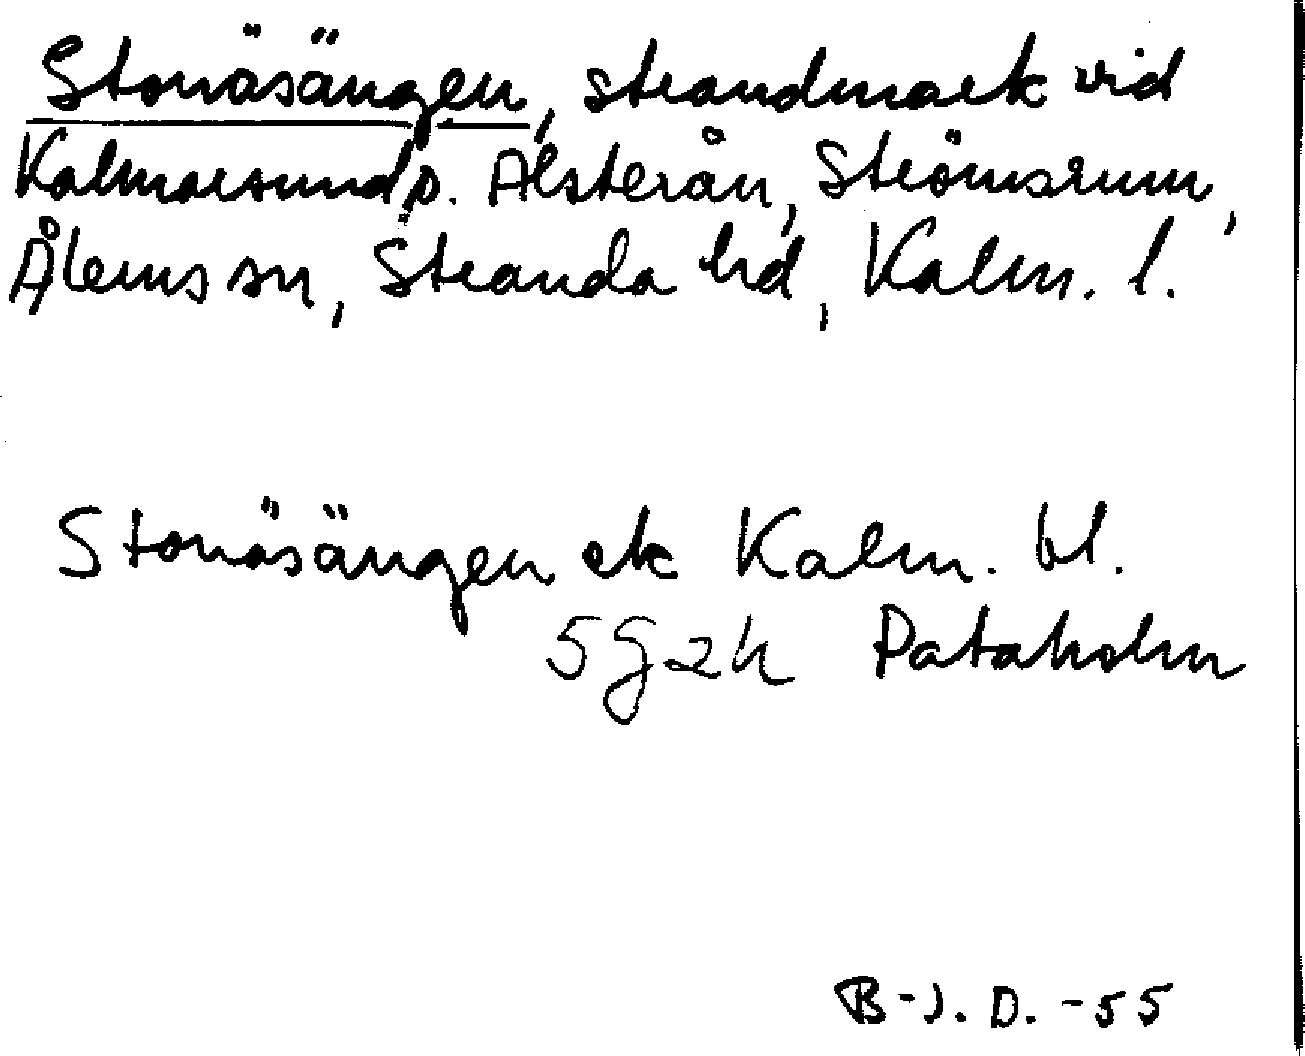 Stonäsängen, strandmark vid
Kalmarsund p. Alsterån, Strömsrum,
Ålems sn, Stranda hd, Kalm. l.
Stonäsängen ek Kalm. bl.
5g2h Pataholm
B-J. D. -55